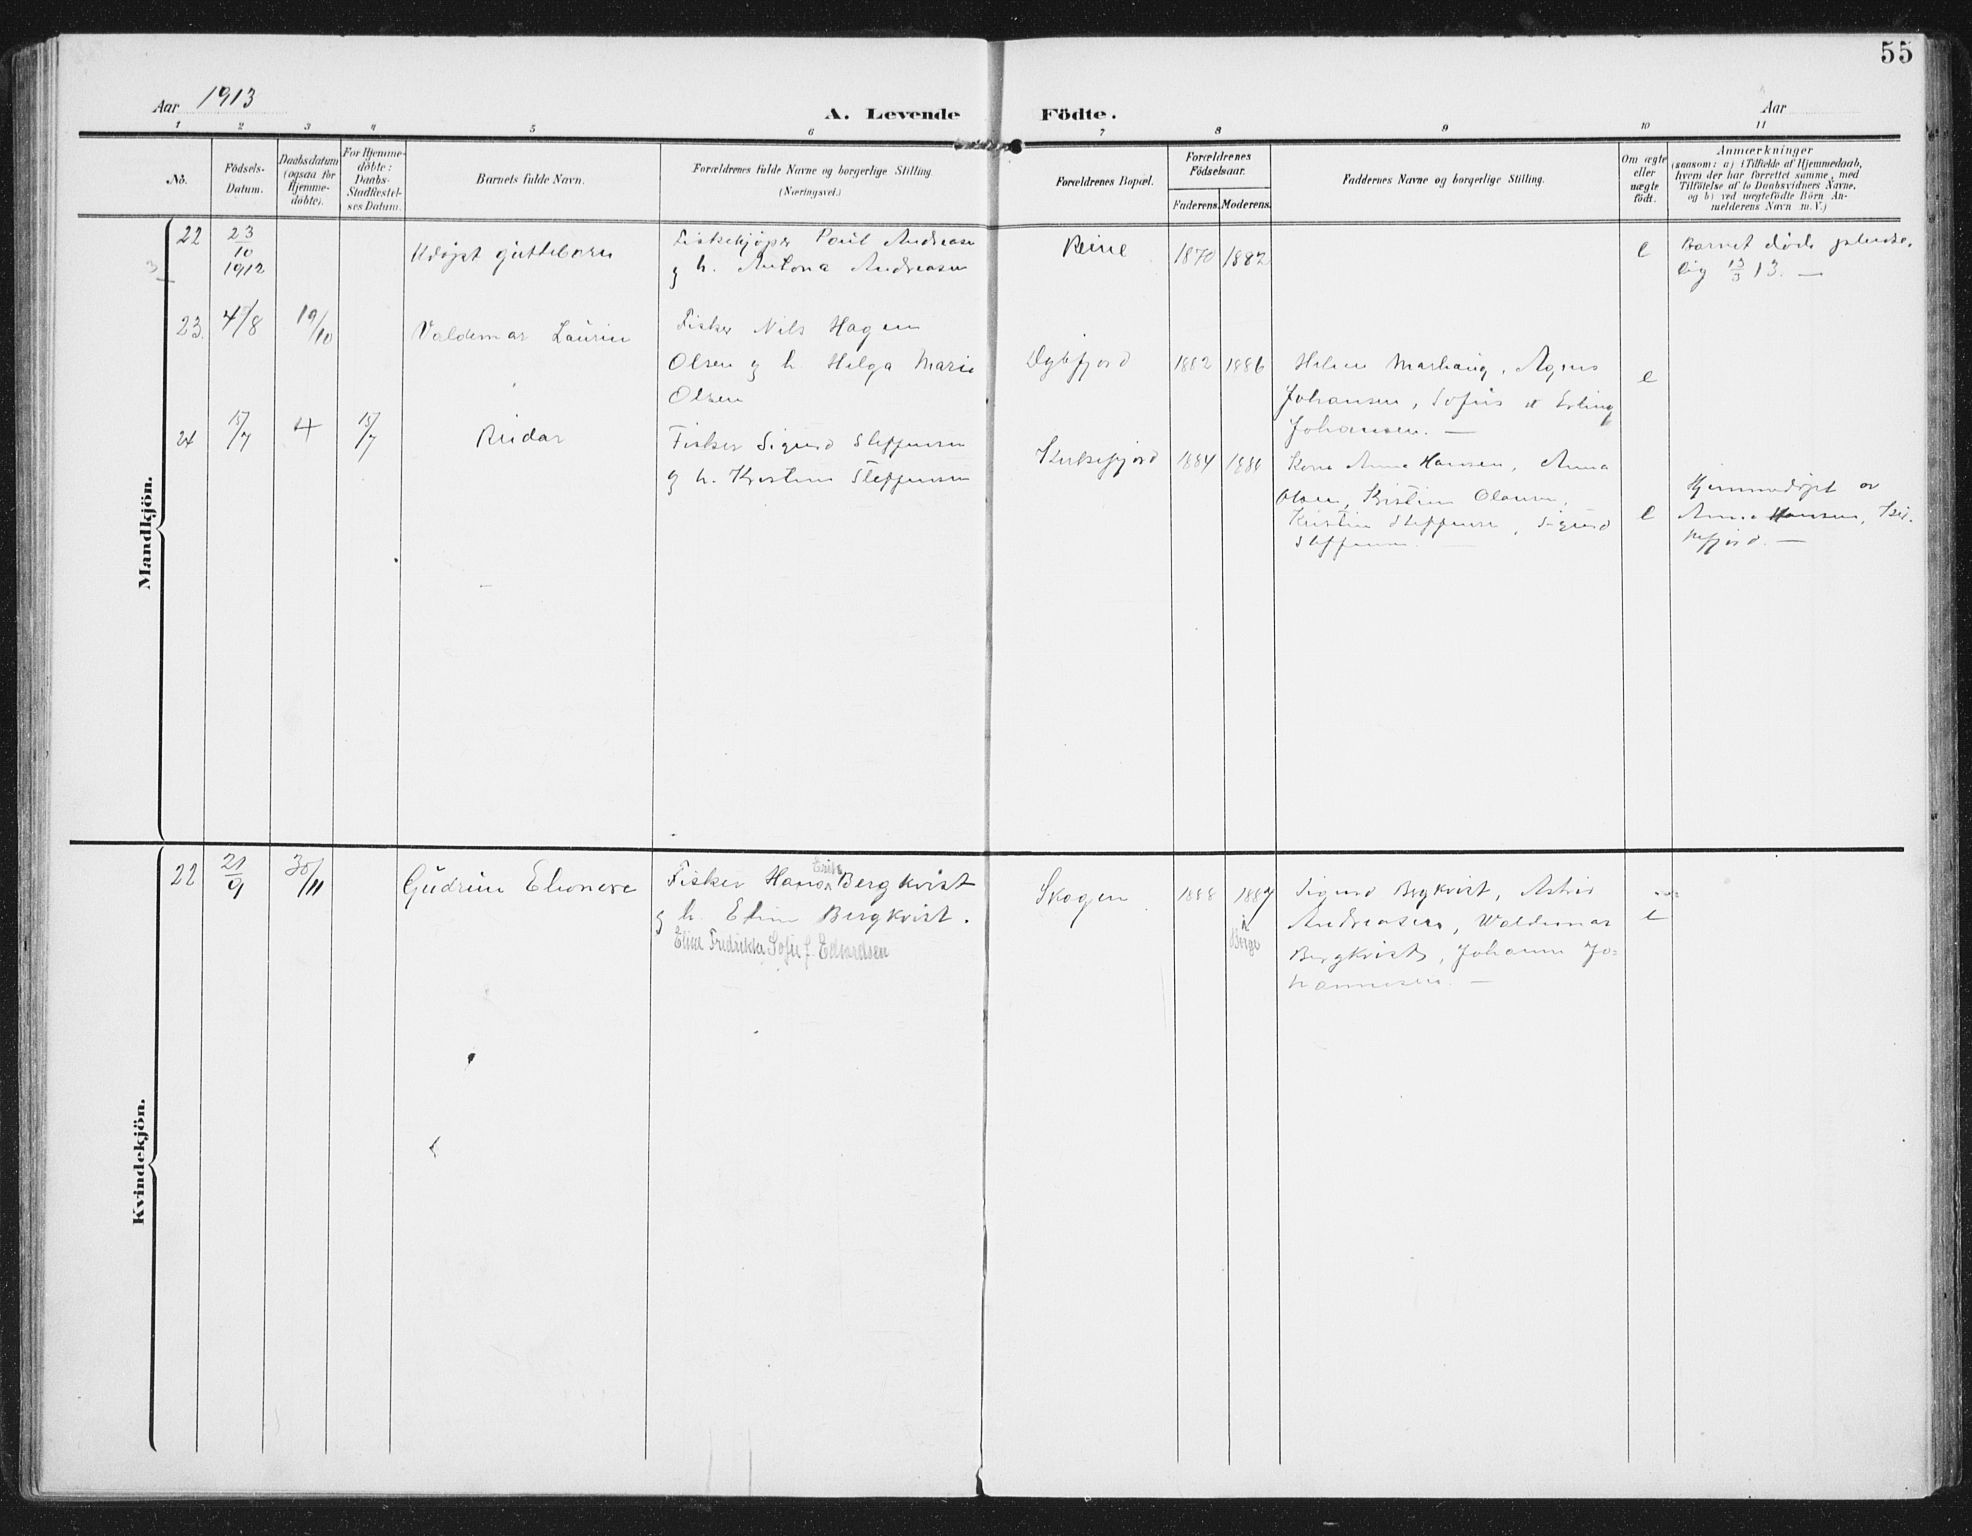 55
Aar 1913
A. Levende Födte.
Aar
1 2 3 4 5 6 7 8 9 10 11
No.
Födsels-
Datum.
Daabsdatum
(ogsaa for
Hjemme-
döbte).
For Hjemme-
döbte:
Daabs-
Stadfæstel-
ses Datum.
Barnets fulde Navn.
Forældrenes fulde Navne og borgerlige Stilling.
(Næringsvei.)
Forældrenes Bopæl.
Forældrenes
Födselsaar.
Faderens. Moderens.
Faddernes Navne og borgerlige Stilling.
Om ægte
eller
uægte
födt.
Anmærkninger
(saasom: a) i Tilfælde af Hjemmedaab,
hvem der har forrettet samme, med
Tilföielse af to Daabsvidners Navne,
og b) ved uægtefödte Börn An-
melderens Navn m. V.)
Mandkjön.
22
23/10
1912
Udøpt guttebarn
Fiskekjøper Paul Andreasen
g h. Antona Andreasen
Reine
1870 1882
e
Barnet døde pludse-
lig 13/3 13. —
23.
4/8
19/10
Valdemar Laurin
Fisker Nils Hagen
Olsen g h. Helga Marie
Olsen
1882 1886
Johansen, Sofus & Erling
Johansen. —
e
24
15/7
15/7
Reidar
Fisker Sigurd Steffensen
g h. Kristine Steffensen
Kirkefjord
1884
Kone Anna Hansen, Anna
Olsen, Kristine
Kristine Steffensen, Sigurd
Steffensen. —
e
Hjemmedøpt av
Anna Hansen, Kir-
kefjord. —
Kvindekjön.
22
21/9
30/11
Gudrun Elionore
Fisker Hans Erik Bergkvist
g h. Eline Bergkvist.
Eline Fredrikke Sofie f. Edvardsen
Skogen
1888 1887
Sigurd Bergkvist, Astrid
Andreasen, Waldemar
Bergkvist, Johanne Jo-
hannesen. —
e